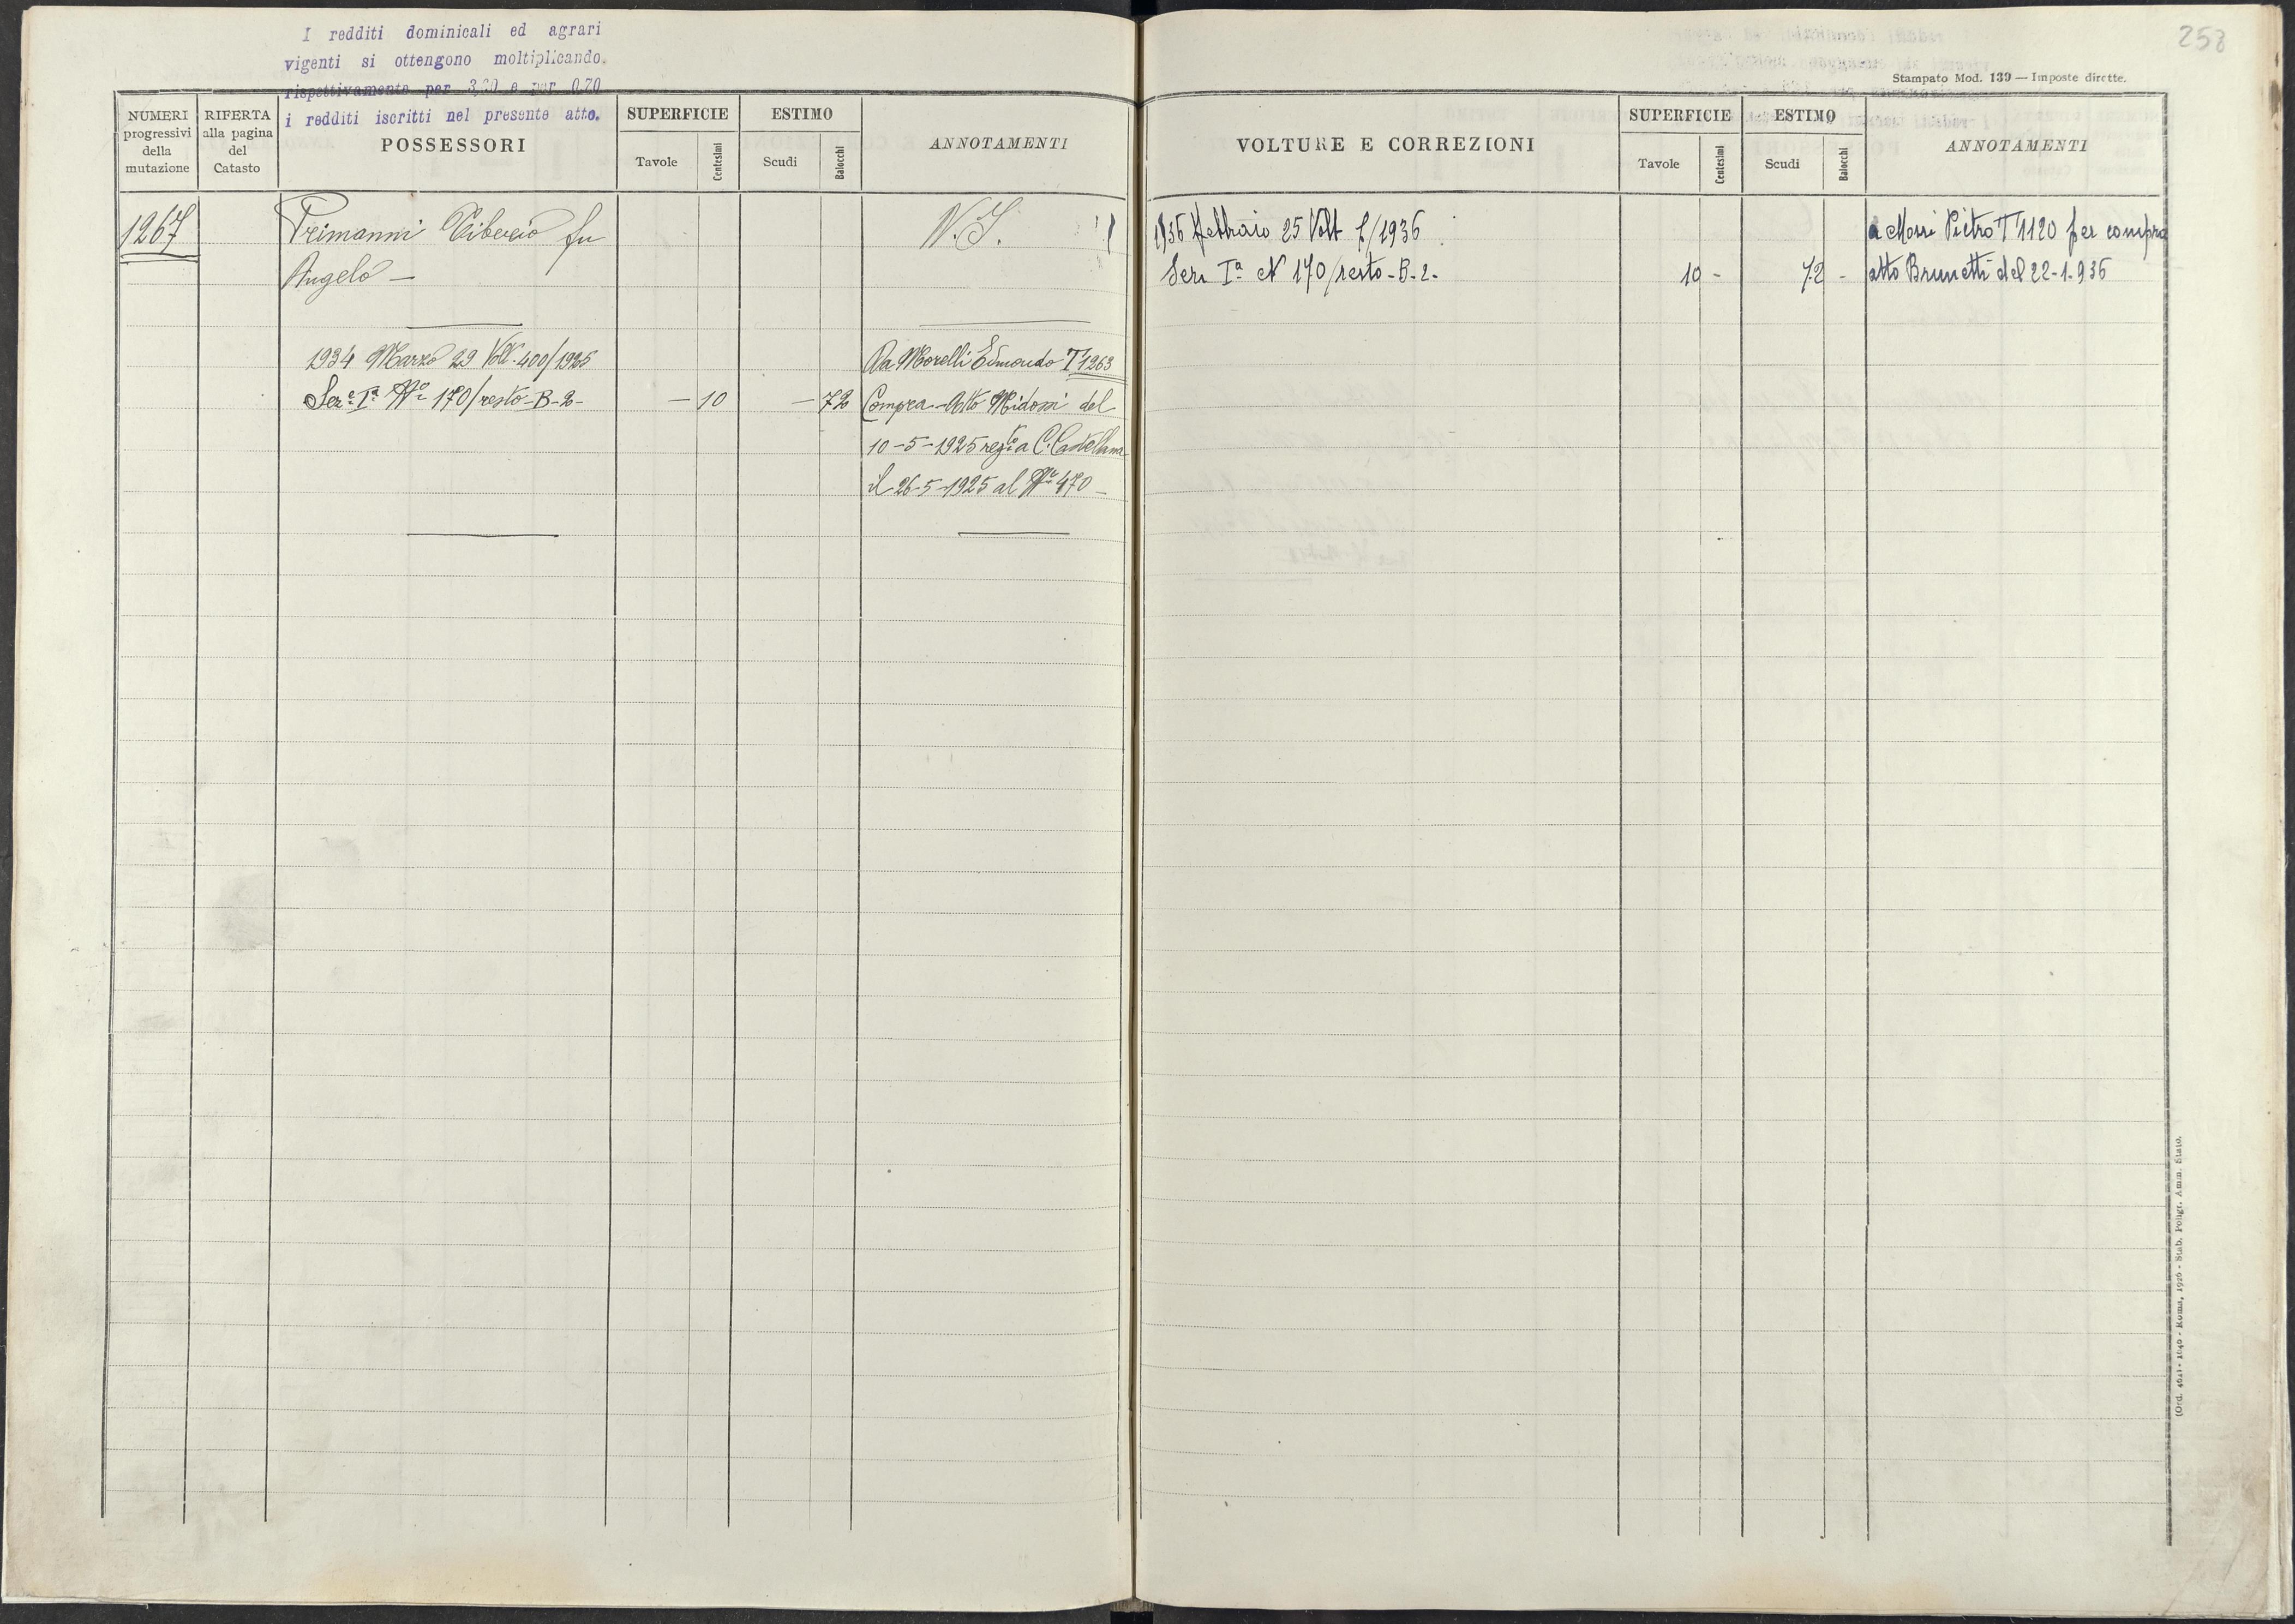 I redditi dominicali ed agrari
vigenti si ottengono moltiplicando
rispettivamente per 3,20 e per 0,70
i redditi iscritti nel presente atto.
NUMERI progressivi della mutazione
RIFERTA alla pagina del Catasto
POSSESSORI
SUPERFICIE
Tavole
Centesimi
ESTIMO
Scudi
Baiocchi
ANNOTAMENTI
1267
Primanni Tiburzio fu
Angelo —
N. I.
1934 Marzo 29 Volt. 400/1925
Sez.e Ia No 170/resto-B-2-
— 10
— 72
Da Morelli Edmondo T 1263
Compra Atto Midossi del
10-5-1925 regto a C. Castellana
il 26-5-1925 al No 470 —
258
Stampato Mod. 139 — Imposte dirette.
VOLTURE E CORREZIONI
SUPERFICIE
Tavole
Centesimi
ESTIMO
Scudi
Baiocchi
ANNOTAMENTI
1936 Febbraio 25 Volt /1936
Sez. Ia N 170/resto-B-2-
10 -
72 -
a Morri Pietro T 1120 per compra
atto Brunetti del 22-1-936
(Ord. - Roma, 1926 - Stab. Poligr. Amm. Stato.